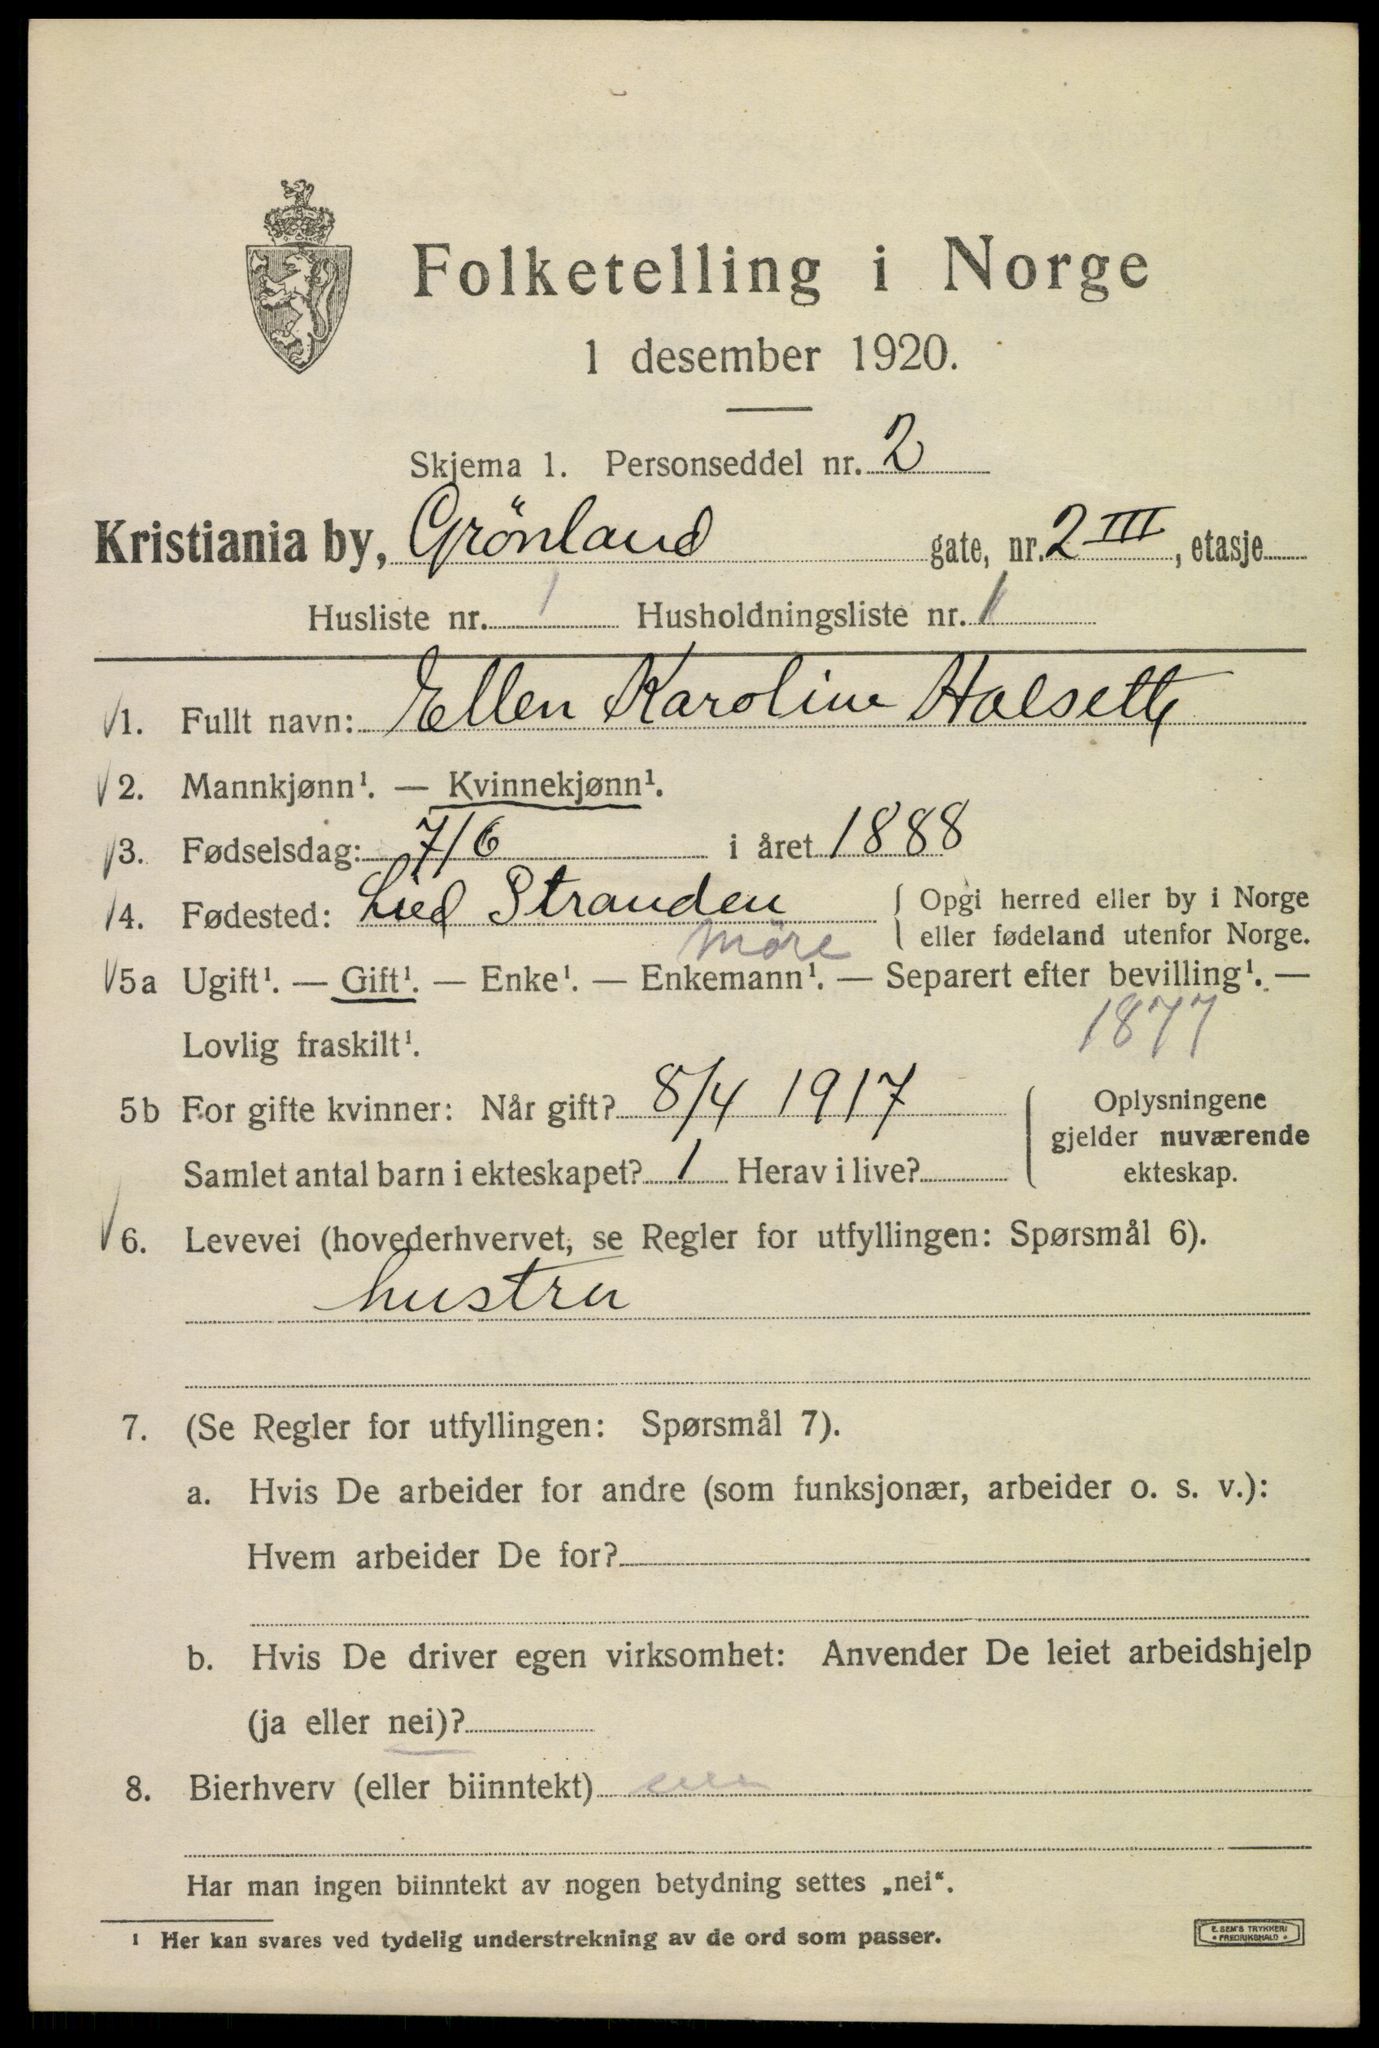 Folketelling i Norge
1 desember 1920.
Skjema 1. Personseddel nr. 2
Kristiania by, Grönland gate, nr. 2 III, etasje
Husliste nr. 1 Husholdningsliste nr. 1
1. Fullt navn: Ellen Karoline Halseth
2. Mannkjønn¹. — Kvinnekjønn¹.
3. Fødselsdag: 7/6 i året 1888
4. Fødested: Stranden { Opgi herred eller by i Norge
eller fødeland utenfor Norge.
Möre
5a Ugift¹. — Gift¹. — Enke¹. — Enkemann¹. — Separert efter bevilling¹. —
Lovlig fraskilt¹. 1877
5b For gifte kvinner: Når gift? 8/4 1917
Samlet antal barn i ekteskapet? 1 Herav i live?
Oplysningene
gjelder nuværende
ekteskap.
6. Levevei (hovederhvervet, se Regler for utfyllingen: Spørsmål 6).
hustru
7. (Se Regler for utfyllingen: Spørsmål 7).
a. Hvis De arbeider for andre (som funksjonær, arbeider o. s. v.):
Hvem arbeider De for?
b. Hvis De driver egen virksomhet: Anvender De leiet arbeidshjelp
(ja eller nei)?
8. Bierhverv (eller biinntekt) nei
Har man ingen biinntekt av nogen betydning settes „nei“.
¹ Her kan svares ved tydelig understrekning av de ord som passer.
E. SEM'S TRYKKERI
FREDRIKSHALD